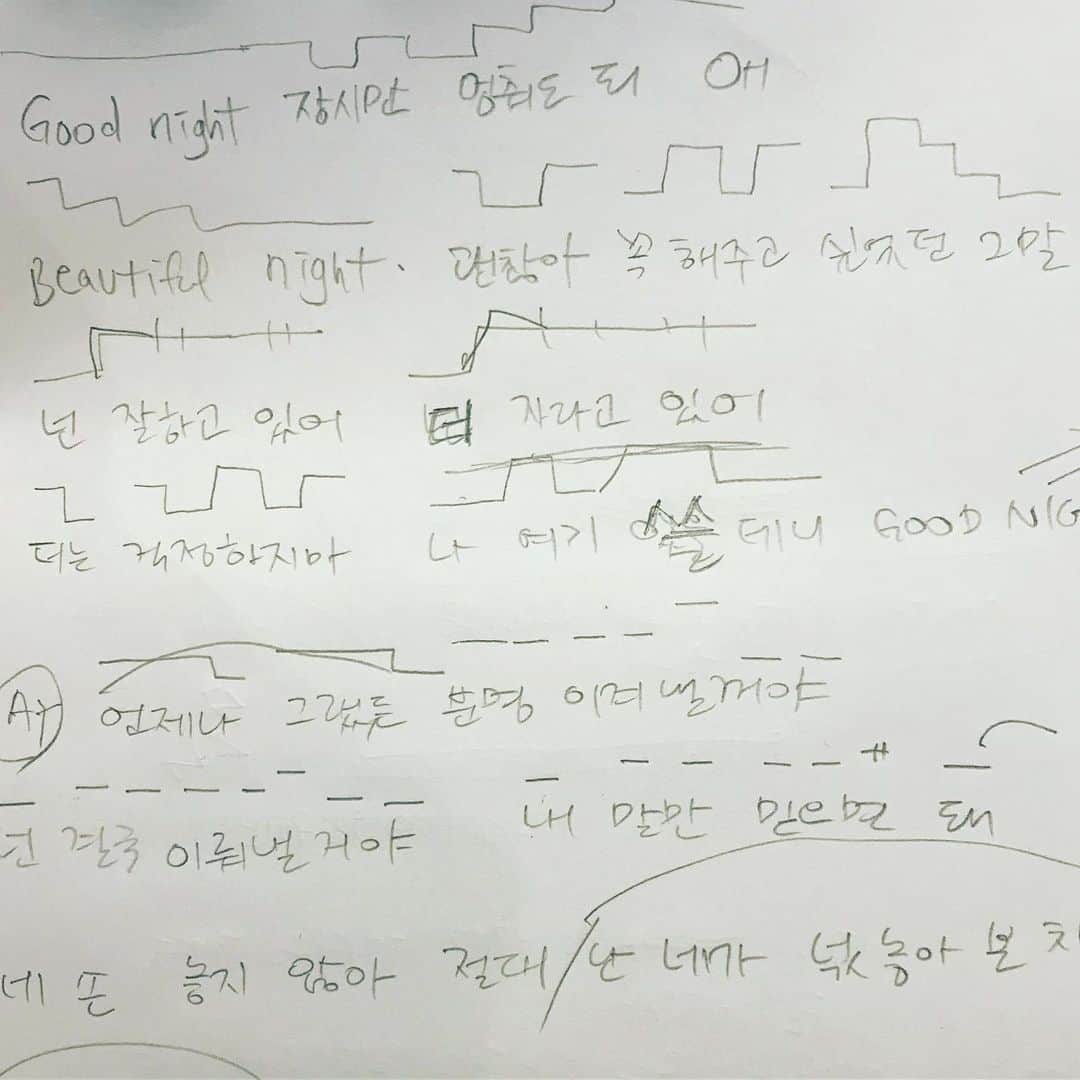 Good night 잠시만 멈춰도 돼 OH
Beautiful night. 괜찮아 꼭 해주고 싶었던 그말
넌 잘하고 있어 자라고 있어
더는 걱정하지마 나 여기 있을 테니 GOOD NIG
언제나 그랬듯 분명 이겨낼꺼야
넌 결국 이뤄낼거야 내 말만 믿으면 돼
네 손 놓지 않아 절대 / 난 네가 넋 놓아 본